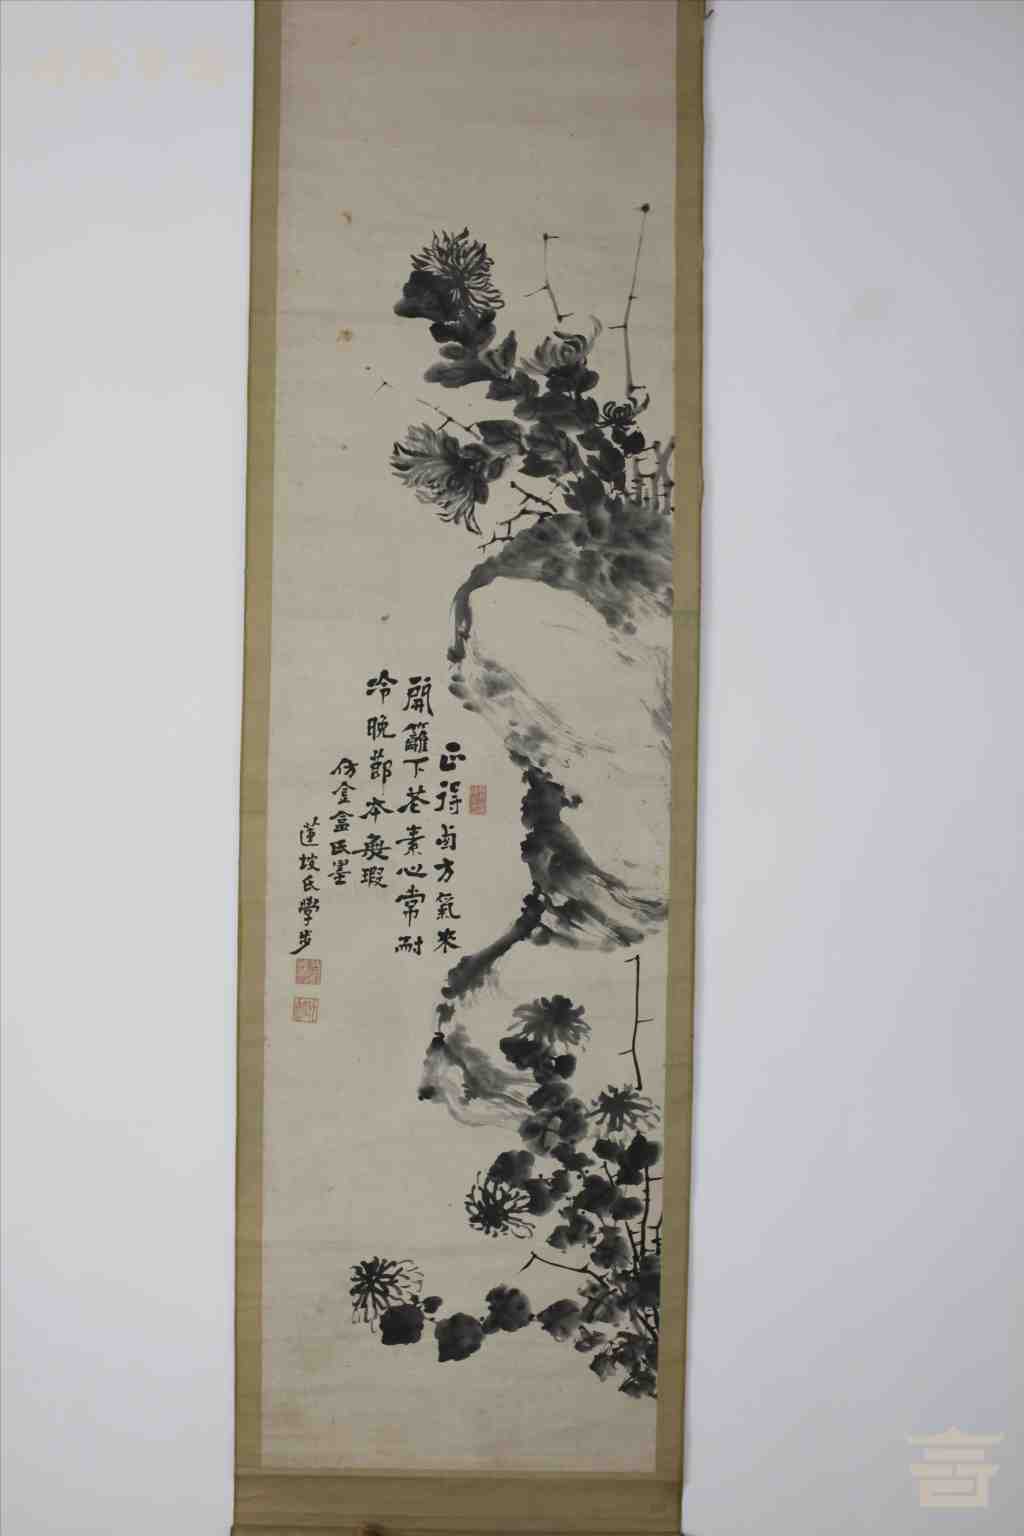 正得西方氣來
開籬下花素心常耐
冷晚節本無瑕
仿金盒氏墨
蓮坡氏學步